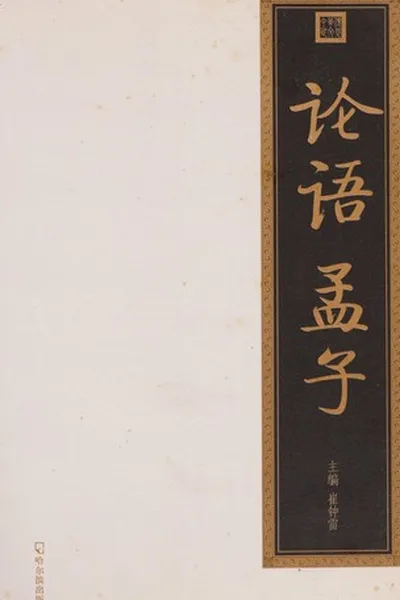 论语 孟子
主编 崔钟雷
哈尔滨出版